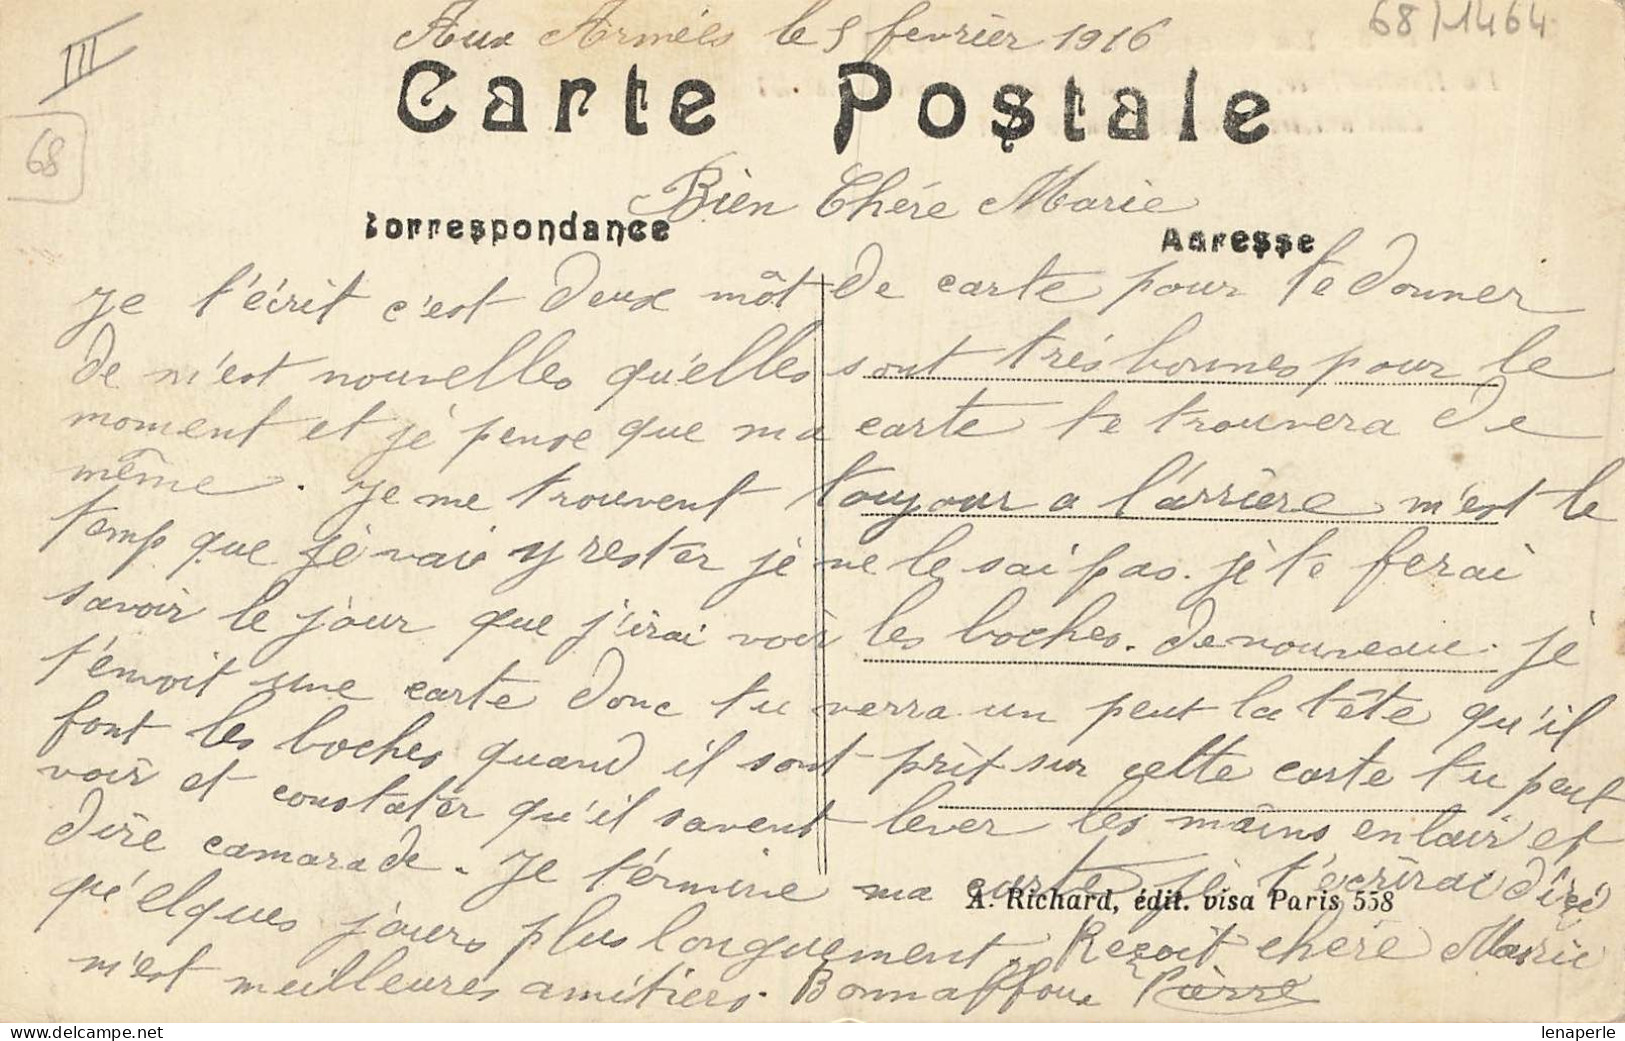 68/1464
III
68
Aux Armées le 5 fevrièr 1916
Carte Postale
Bien Chére Marie
Correspondance
Adresse
Je t'écrit c'est deux môt de carte pour te donner
de m'est nouvelles qu'elles sont trés bonnes pour le
moment et jè pense que ma carte te trouvera de
même. Je me trouvent toujour a l'arrière m'est le
temp que jè vais y rester jè ne le sai pas. jè te ferai
savoir le jour que j'irai voir les boches. de nouveau. jè
t'envoit une carte donc tu verra un peut la tête qu'il
font les boches quand il sont prèt sur cette carte tu peut
voir et constatér qu'il savent lever les mains en lair et
dire camarade. Je términe ma carte jè t'écrirai dici
qu'elques jours plus longuement. Rezoit chére Marie
m'est meilleures amitiers. Bonnaffoux Pièrre
A. Richard, édit. visa Paris 558
lenaperle